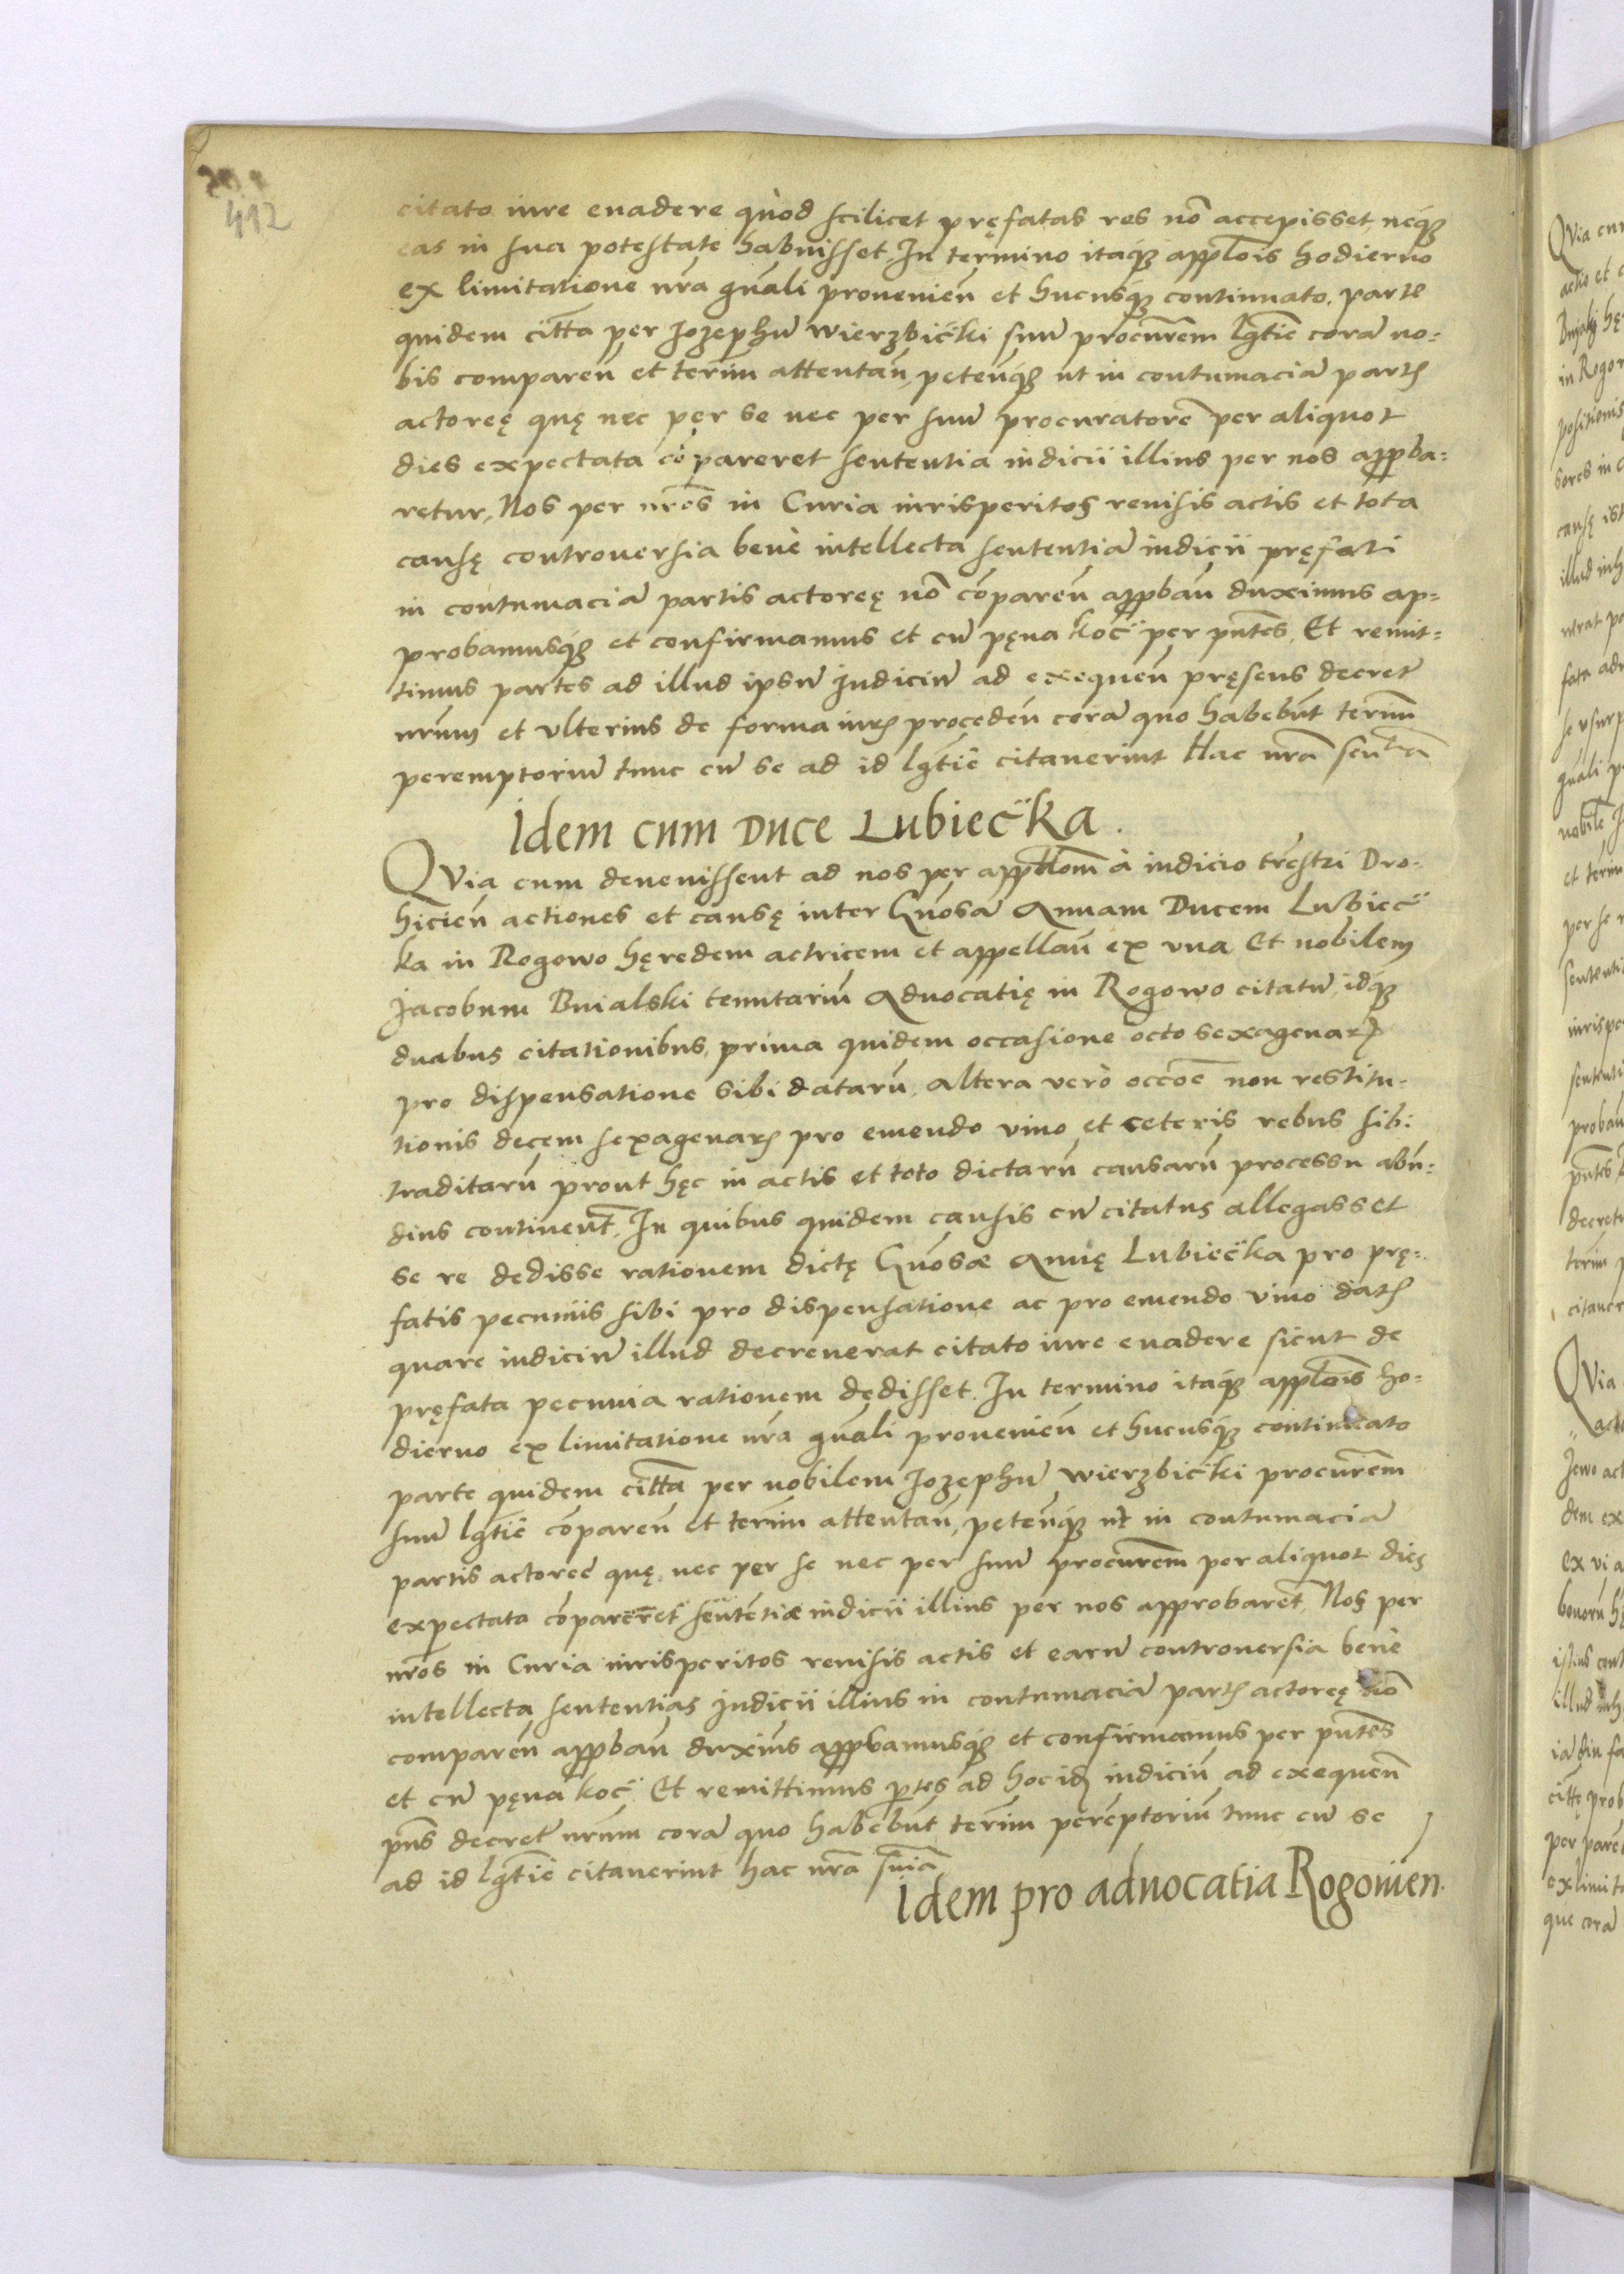 412
citato iure euadere quòd scilicet pręfatas res nō accepisset, neq́ꝫ
eas in sua potestate habuisset. In termino itaq́ꝫ applōis hodierno
ex limitatione nr̄a gn̄ali prouenieñ et hucusq́ꝫ continuato, parte
quidem citt̄a per Jozephū wierzbiċki suū procur̄em lgt̄ie corā no=
bis compareñ et ter̄im attentañ, peteñq́ꝫ ut in contumaciā partꝭ
actoreę quę nec per se nec per suū procuratorē per aliquot
dies expectata cō pareret sententia iudicii illius per nos app̄ba=
retur, Nos per nr̄os in Curia iurisperitos reuisis actis et tota
causę controuersia benè intellecta sententiā iudicii pręfati
in contumaciā partis actoreę nō cōpareñ app̄bañ duximus ap=
probamusq́ꝫ et confirmamus et cū pęna koc̈ per pn̄tes, Et remit=
timus partes ad illud ipsū Judiciū ad exequeñ pręsens decret̄
nr̄um et vlterius de forma iurꝭ procedeñ corā quo habebūt ter̄im
peremptoriū tunc cū se ad id lgt̄ie citauerint Hac nr̄a sen̄tia
Idem cum Duce Lubiec̈ka.
QVia cum deuenissent ad nos per appllōm à iudicio trēstri Dro=
hicieñ actiones et causę inter Gn̄osā Annam Ducem Lubiec̈
ka in Rogowo hęredem actricem et appellañ ex vna Et nobilem
Jacobum Buialski tenutariū Aduocatię in Rogowo citatū, idq́ꝫ
duabus citationibus, prima quidem occasione octo sexagenaꝝ
pro dispensatione sibi datarū, altera verò occōe non restitu=
tionis decem sexagenarꝭ pro emendo vino et ceteris rebus sibi
traditarū prout hęc in actis et toto dictarū causarū processu abū=
dius continent̄. In quibus quidem causis cū citatus allegasset
se re dedisse rationem dictę Gn̄osæ Annę Lubiec̈ka pro prę=
fatis pecuniis sibi pro dispensatione ac pro emendo vino datꝭ
quare iudiciū illud decreuerat citato iure euadere sicut de
pręfata pecunia rationem dędisset. In termino itaq́ꝫ applōis ho=
dierno ex limitatione nr̄a gn̄ali prouenieñ et hucusq́ꝫ continuato
parte quidem citt̄a per nobilem Jozephū wierzbiċki procur̄em
suū lgt̄ie cōpareñ et ter̄im attentañ, peteñq́ꝫ ut in contumaciā
partis actoreę quę nec per se nec per suū procur̄em per aliquot dies
expectata cōpareret sententiæ iudicii illius per nos approbarēt, Nos per
nr̄os in Curia iurisperitos reuisis actis et earū controuersia benè
intellecta sententias Judicii illius in contumaciā partꝭ actoreę nō
compareñ app̄bañ duxim̄s app̄bamusq́ꝫ et confirmamus per pn̄tes
et cū pęna koc̈. Et remittimus p̄tes ad hoc idꝫ iudiciū ad exequeñ
pn̄s decret̄ nr̄um corā quo habebūt ter̄im perēptoriū tunc cū se
ad id lgt̄ie citauerint hac nr̄a sn̄ia
Idem pro aduocatia Rogowien.